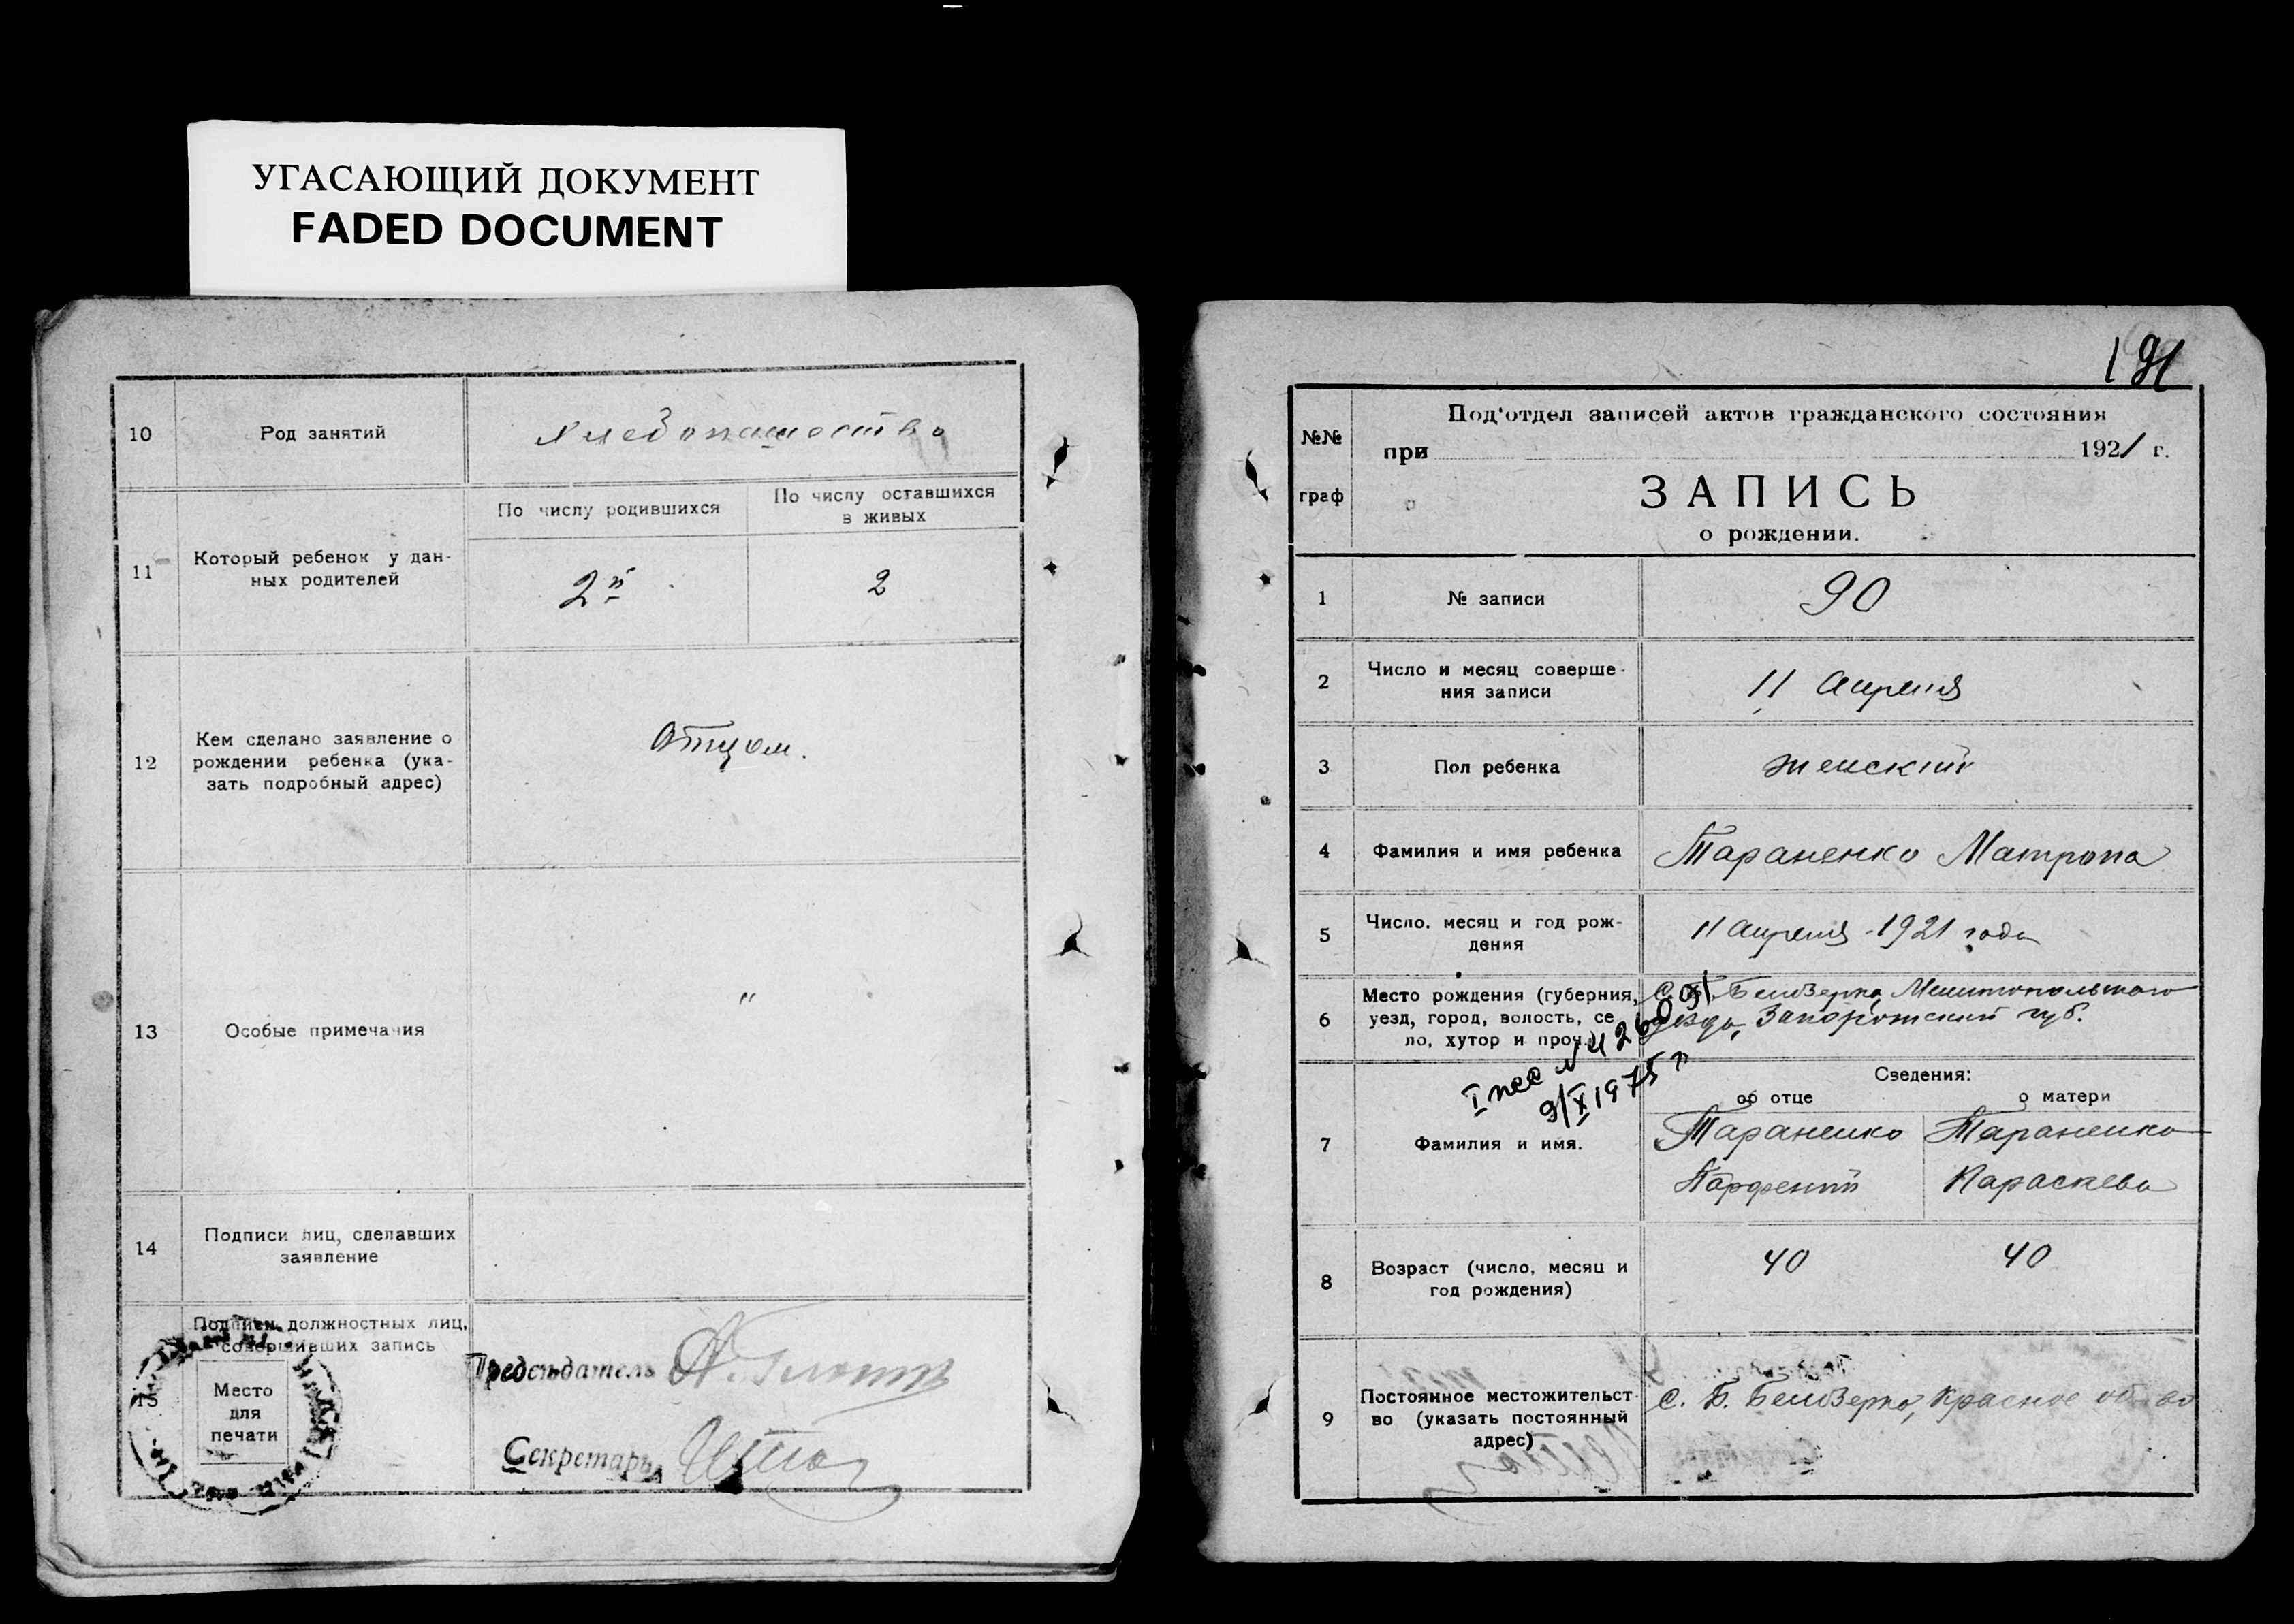 УГАСАЮЩИЙ ДОКУМЕНТ
FADED DOCUMENT
10
Род занятий
11
Который ребенок у дан-
ных родителей
По числу родившихся
По числу оставшихся
в живых
2й
2
12
Кем сделано заявление о
рождении ребенка (ука-
зать подробный адрес)
Отцом.
13
Особые примечания
"
14
Подписи лиц, сделавших
заявление
15
Подписи должностных лиц,
совершивших запись
Место
для
печати
Председатель
Секретарь
191
№№
граф
Под'отдел записей актов гражданского состояния
при 1921 г.
ЗАПИСЬ
о рождении.
1
№ записи
90
2
Число и месяц соверше-
ния записи
11 Апреля
3
Пол ребенка
женский
4
Фамилия и имя ребенка
Тараненко Матрона
5
Число, месяц и год рож-
дения
11 Апреля 1921 года
6
Место рождения (губерния,
уезд, город, волость, се
ло, хутор и проч.)
С. Б. Белозерка, Мелитопольского
уезда, Запорожский губ.
9/X 1975
7
Фамилия и имя.
Сведения:
об отце
о матери
Тараненко
Парфений
Тараненко
Параскева
8
Возраст (число, месяц и
год рождения)
40
40
9
Постоянное местожительст-
во (указать постоянный
адрес)
С. Б. Белозерка, Красное